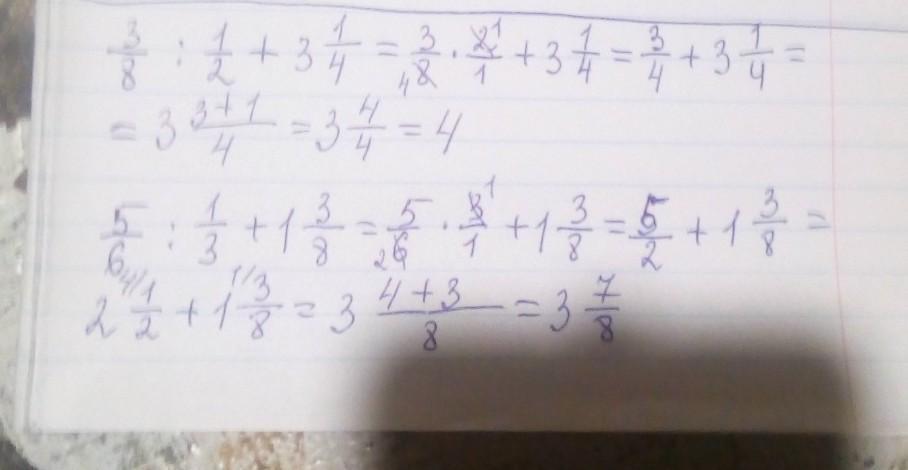 3/8 : 1/2 + 3 1/4 = 3/8 4 · 2/1 1 + 3 1/4 = 3/4 + 3 1/4 =
= 3 3+1/4 = 3 4/4 = 4
5/6 : 1/3 + 1 3/8 = 5/6 2 · 3/1 1 + 1 3/8 = 5/2 + 1 3/8 =
2 4/ 1/2 + 1 1/ 3/8 = 3 4+3/8 = 3 7/8